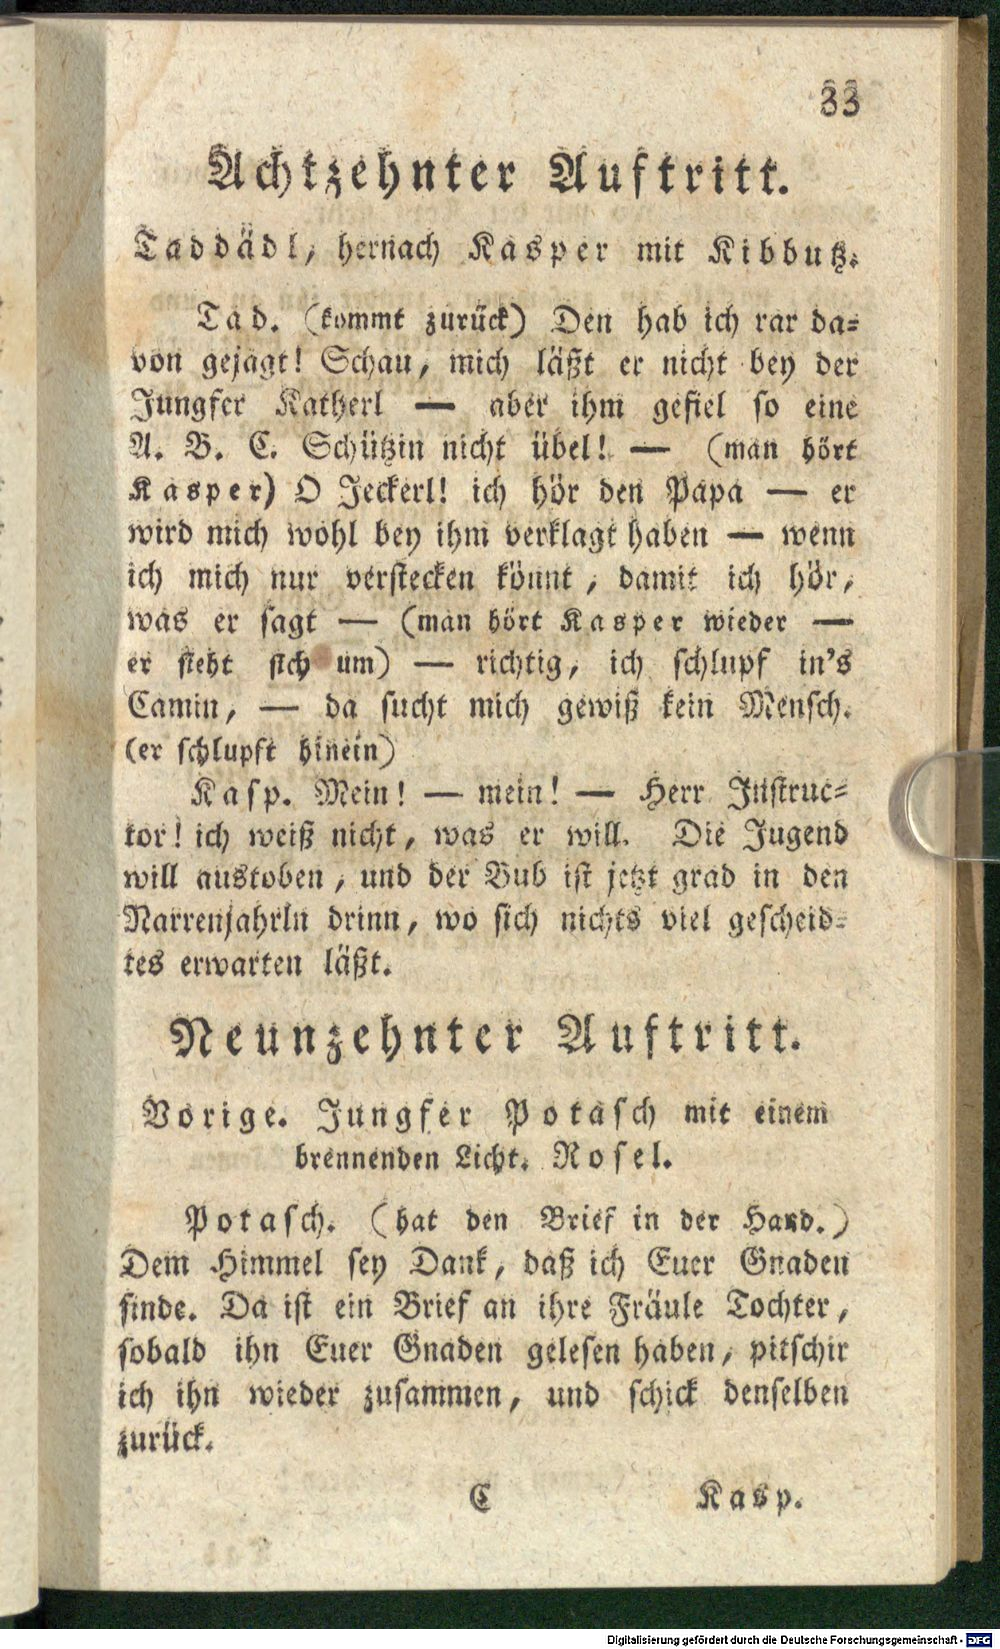 33
Achtzehnter Auftritt.
Taddädl, hernach Kasper mit Kibbutz.
Tad. (kommt zurück) Den hab ich rar da-
von gejagt! Schau, mich läßt er nicht bey der
Jungfer Katherl — aber ihm gefiel so eine
A. B. C. Schützin nicht übel! — (man hört
Kasper) O Jeckerl! ich hör den Papa — er
wird mich wohl bey ihm verklagt haben — wenn
ich mich nur verstecken könnt, damit ich hör,
was er sagt — (man hört Kasper wieder —
er sieht sich um) — richtig, ich schlupf in's
Camin, — da sucht mich gewiß kein Mensch.
(er schlupft hinein)
Kasp. Mein! — mein! — Herr Instruc-
tor! ich weiß nicht, was er will. Die Jugend
will austoben, und der Bub ist jetzt grad in den
Narrenjahrln drinn, wo sich nichts viel gescheid-
tes erwarten läßt.
Neunzehnter Auftritt.
Vorige. Jungfer Potasch mit einem
brennenden Licht. Rosel.
Potasch. (hat den Brief in der Hand.)
Dem Himmel sey Dank, daß ich Euer Gnaden
finde. Da ist ein Brief an ihre Fräule Tochter,
sobald ihn Euer Gnaden gelesen haben, pitschir
ich ihn wieder zusammen, und schick denselben
zurück.
C Kasp.
Digitalisierung gefördert durch die Deutsche Forschungsgemeinschaft - DFG